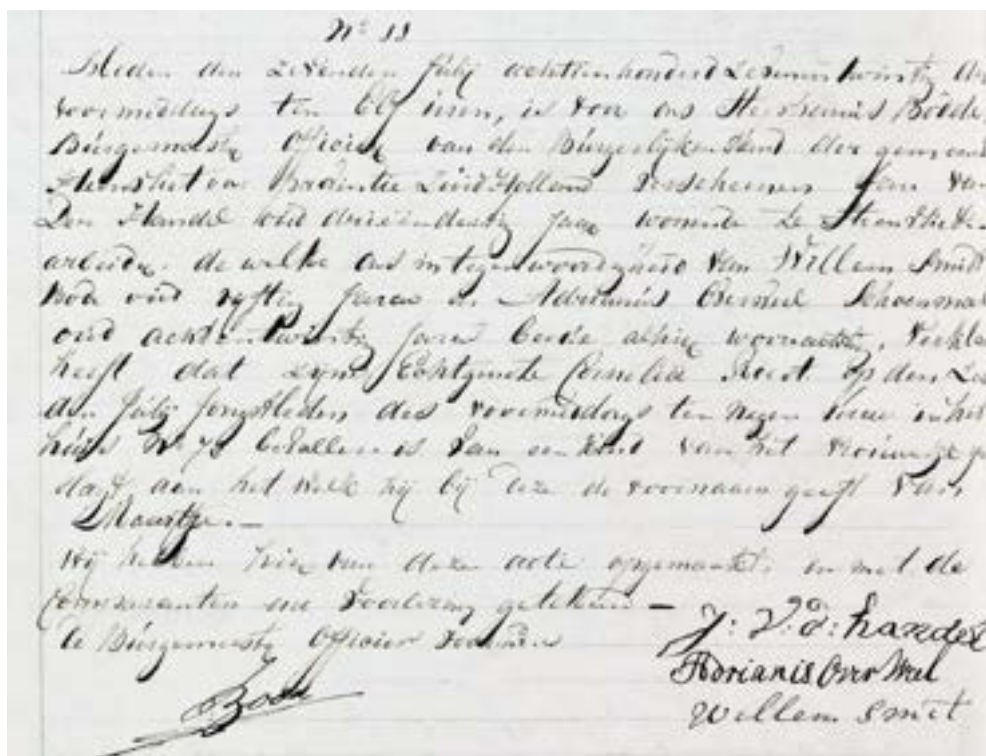 No 11
Heden den zevenden Julij achttienhonderd zevenentwintig des
voormiddags ten elf uren, is voor ons
Burgemeester Officier van den Burgerlijken Stand der gemeente
Provintie Zuid Holland verschenen Jan van
Den Handel oud drieendertig Jaar wonende te
arbeider, de welke ons in tegenwoordigheid van Willem Smit
oud vyftig Jaren en Adrianus
oud achtentwintig Jaren beide alhier woonachtig, verkla
heeft dat zyne Echtgenote Cornelia op den
den Julij Jongstleden des voormiddags ten negen uure in het
huis No 72 bevallen is van een kind van het vrouwelyk ge
slagt aan het welk hij bij deze de voornaam geeft van
Maartje. —
Wij hebben hier van deze acte opgemaakt en met de
Comparanten na voorlezing getekend —
de Burgemeester Officier voornoemd
J: V: d: handel
Adrianis Over Weel
Willem Smit